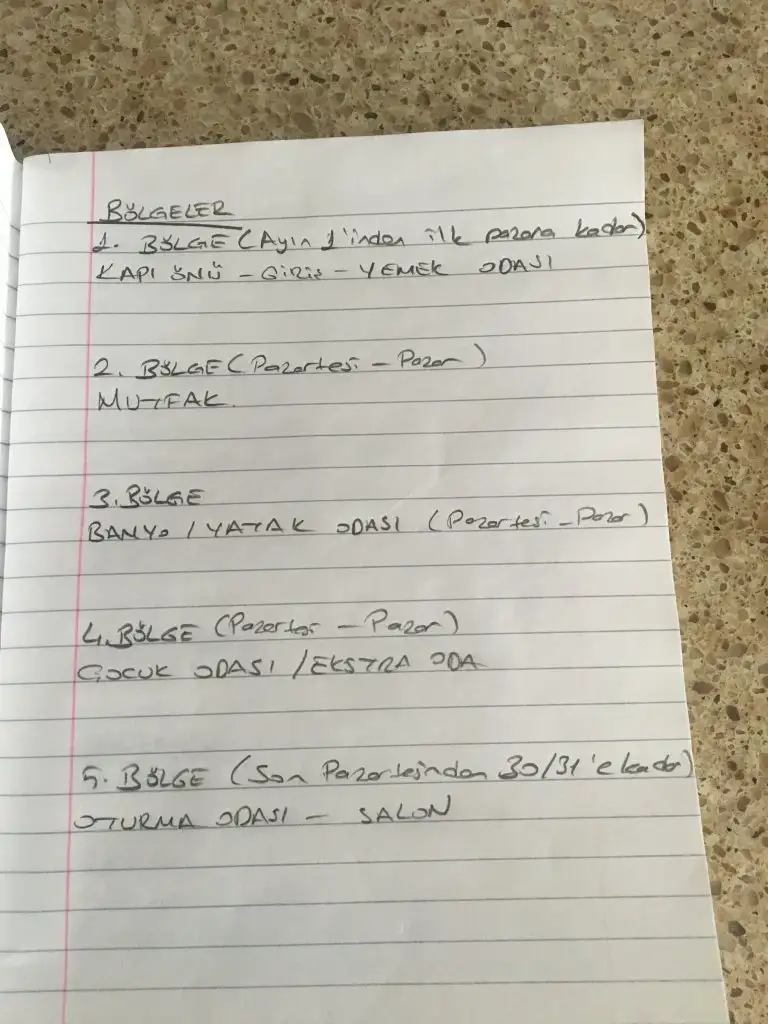 BÖLGELER
1. BÖLGE (Ayın 1'inden ilk pazara kadar)
KAPI ÖNÜ - GİRİŞ - YEMEK ODASI
2. BÖLGE (Pazartesi - Pazar)
MUTFAK
3. BÖLGE
BANYO / YATAK ODASI (Pazartesi - Pazar)
4. BÖLGE (Pazartesi - Pazar)
ÇOCUK ODASI / EKSTRA ODA
5. BÖLGE (Son Pazartesinden 30/31'e kadar)
OTURMA ODASI - SALON